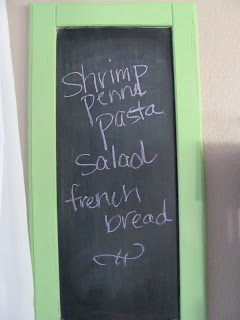 shrimp
penne
pasta
salad
french
bread